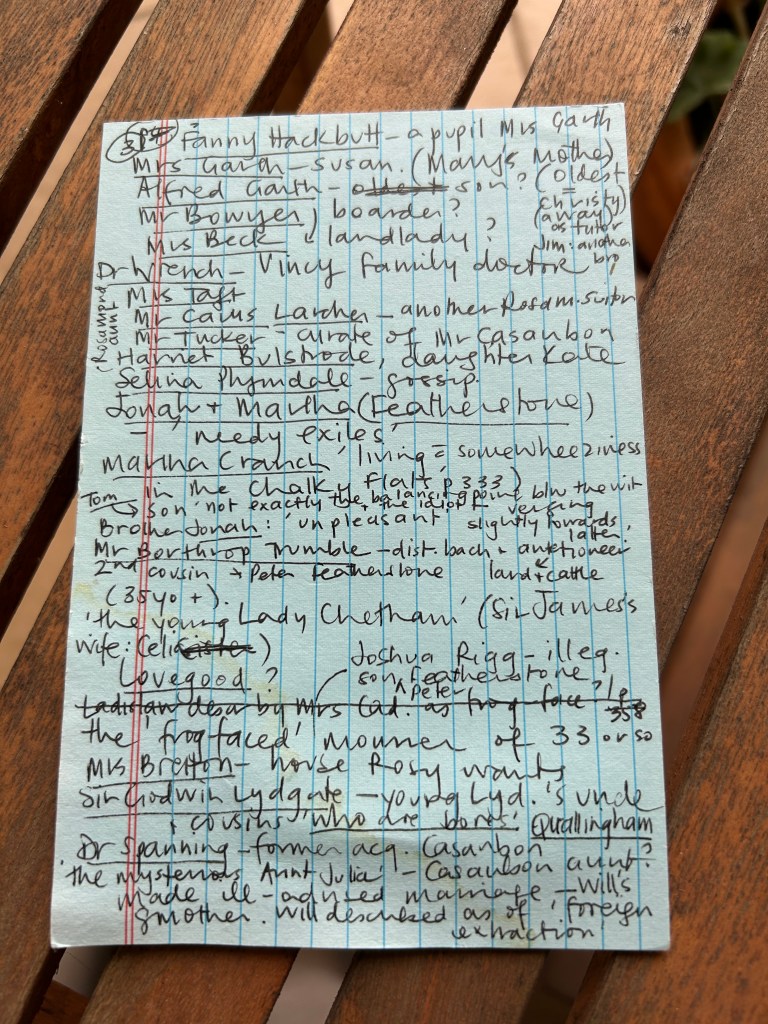 3 Fanny Hackbutt – a pupil Mrs Garth
Mrs Garth – Susan. (Mary's Mother)
Alfred Garth – oldest son? (oldest
= Christy)
(away)
as tutor
Jim: another
bro)
Mr Bowyer, boarder?
Mrs Beck landlady?
Dr Wrench – Vincy family doctor
Mrs Taft
Mr Caius Larcher – another Rosam. suitor
Rosamond aunt
Mr Tucker curate of Mr Casaubon
Harriet Bulstrode, daughter Kate
Selina Plymdale – gossip.
Jonah + Martha (Featherstone)
– 'needy exiles'
Martha Cranch 'living = some wheeziness
in the Chalky Flats' p 333)
Tom → son 'not exactly the balancing point btw the wit
+ the idiot + verging
slightly towards
latter'
Brother Jonah: 'unpleasant'
Mr Borthrop Trumble – dist. bach + auctioneer
land + cattle
2nd cousin → Peter Featherstone
(35yo +).
'the young Lady Chetham' (Sir James's
wife: Celia)
Lovegood?
Joshua Rigg – illeg.
son Peter Featherstone
Ladislaw descr by Mrs Cad. as frog face? 358
the 'frog faced' mourner of 33 or so
Mrs Bretton – house Rosy wants
Sir Godwin Lydgate – young Lyd.'s uncle
+ cousins 'who are bores' Quallingham
?
Dr Spanning – former acq. Casaubon
the mysterious 'Aunt Julia' – Casaubon aunt?
made ill-advised marriage – Will's
gmother. Will described as of 'foreign
extraction'